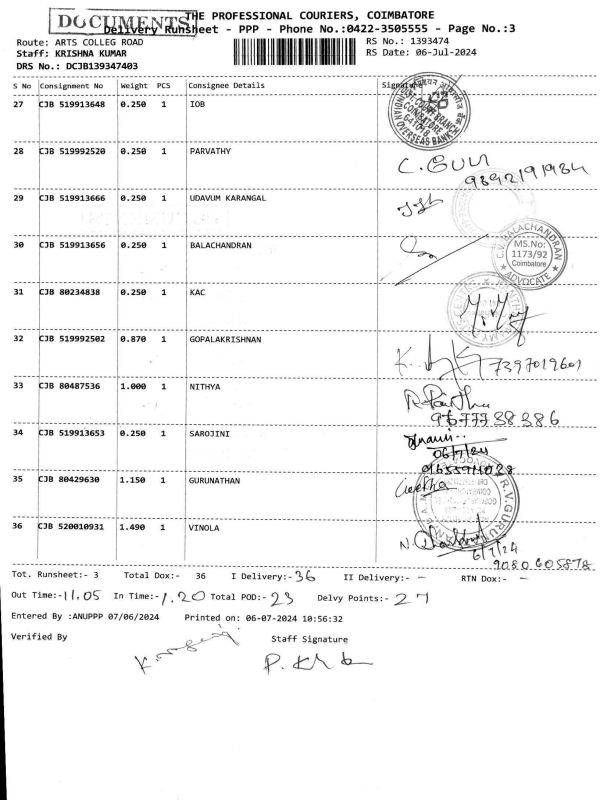 DOCUMENTS
THE PROFESSIONAL COURIERS, COIMBATORE
Delivery Runsheet - PPP - Phone No.:0422-3505555 - Page No.:3
Route: ARTS COLLEG ROAD RS No.: 1393474
Staff: KRISHNA KUMAR RS Date: 06-Jul-2024
DRS No.: DCJB139347403
S No Consignment No Weight PCS Consignee Details Signature
27 CJB 519913648 0.250 1 IOB
COIMBATORE
641018
INDIAN OVERSEAS BANK
28 CJB 519992520 0.250 1 PARVATHY
9892191984
29 CJB 519913666 0.250 1 UDAVUM KARANGAL
30 CJB 519913656 0.250 1 BALACHANDRAN
C.V. BALACHANDRAN
MS.No:
1173/92
Coimbatore
★ ADVOCATE ★
31 CJB 80234838 0.250 1 KAC
32 CJB 519992502 0.870 1 GOPALAKRISHNAN
7397019601
33 CJB 80487536 1.000 1 NITHYA
9677738386
34 CJB 519913653 0.250 1 SAROJINI
06/7/24
35 CJB 80429630 1.150 1 GURUNATHAN
36 CJB 520010931 1.490 1 VINOLA
6/7/24
9080605878
Tot. Runsheet:- 3 Total Dox:- 36 I Delivery:- 36 II Delivery:- - RTN Dox:- -
Out Time:- 11.05 In Time:- 1.20 Total POD:- 23 Delvy Points:- 27
Entered By :ANUPPP 07/06/2024 Printed on: 06-07-2024 10:56:32
Verified By Staff Signature